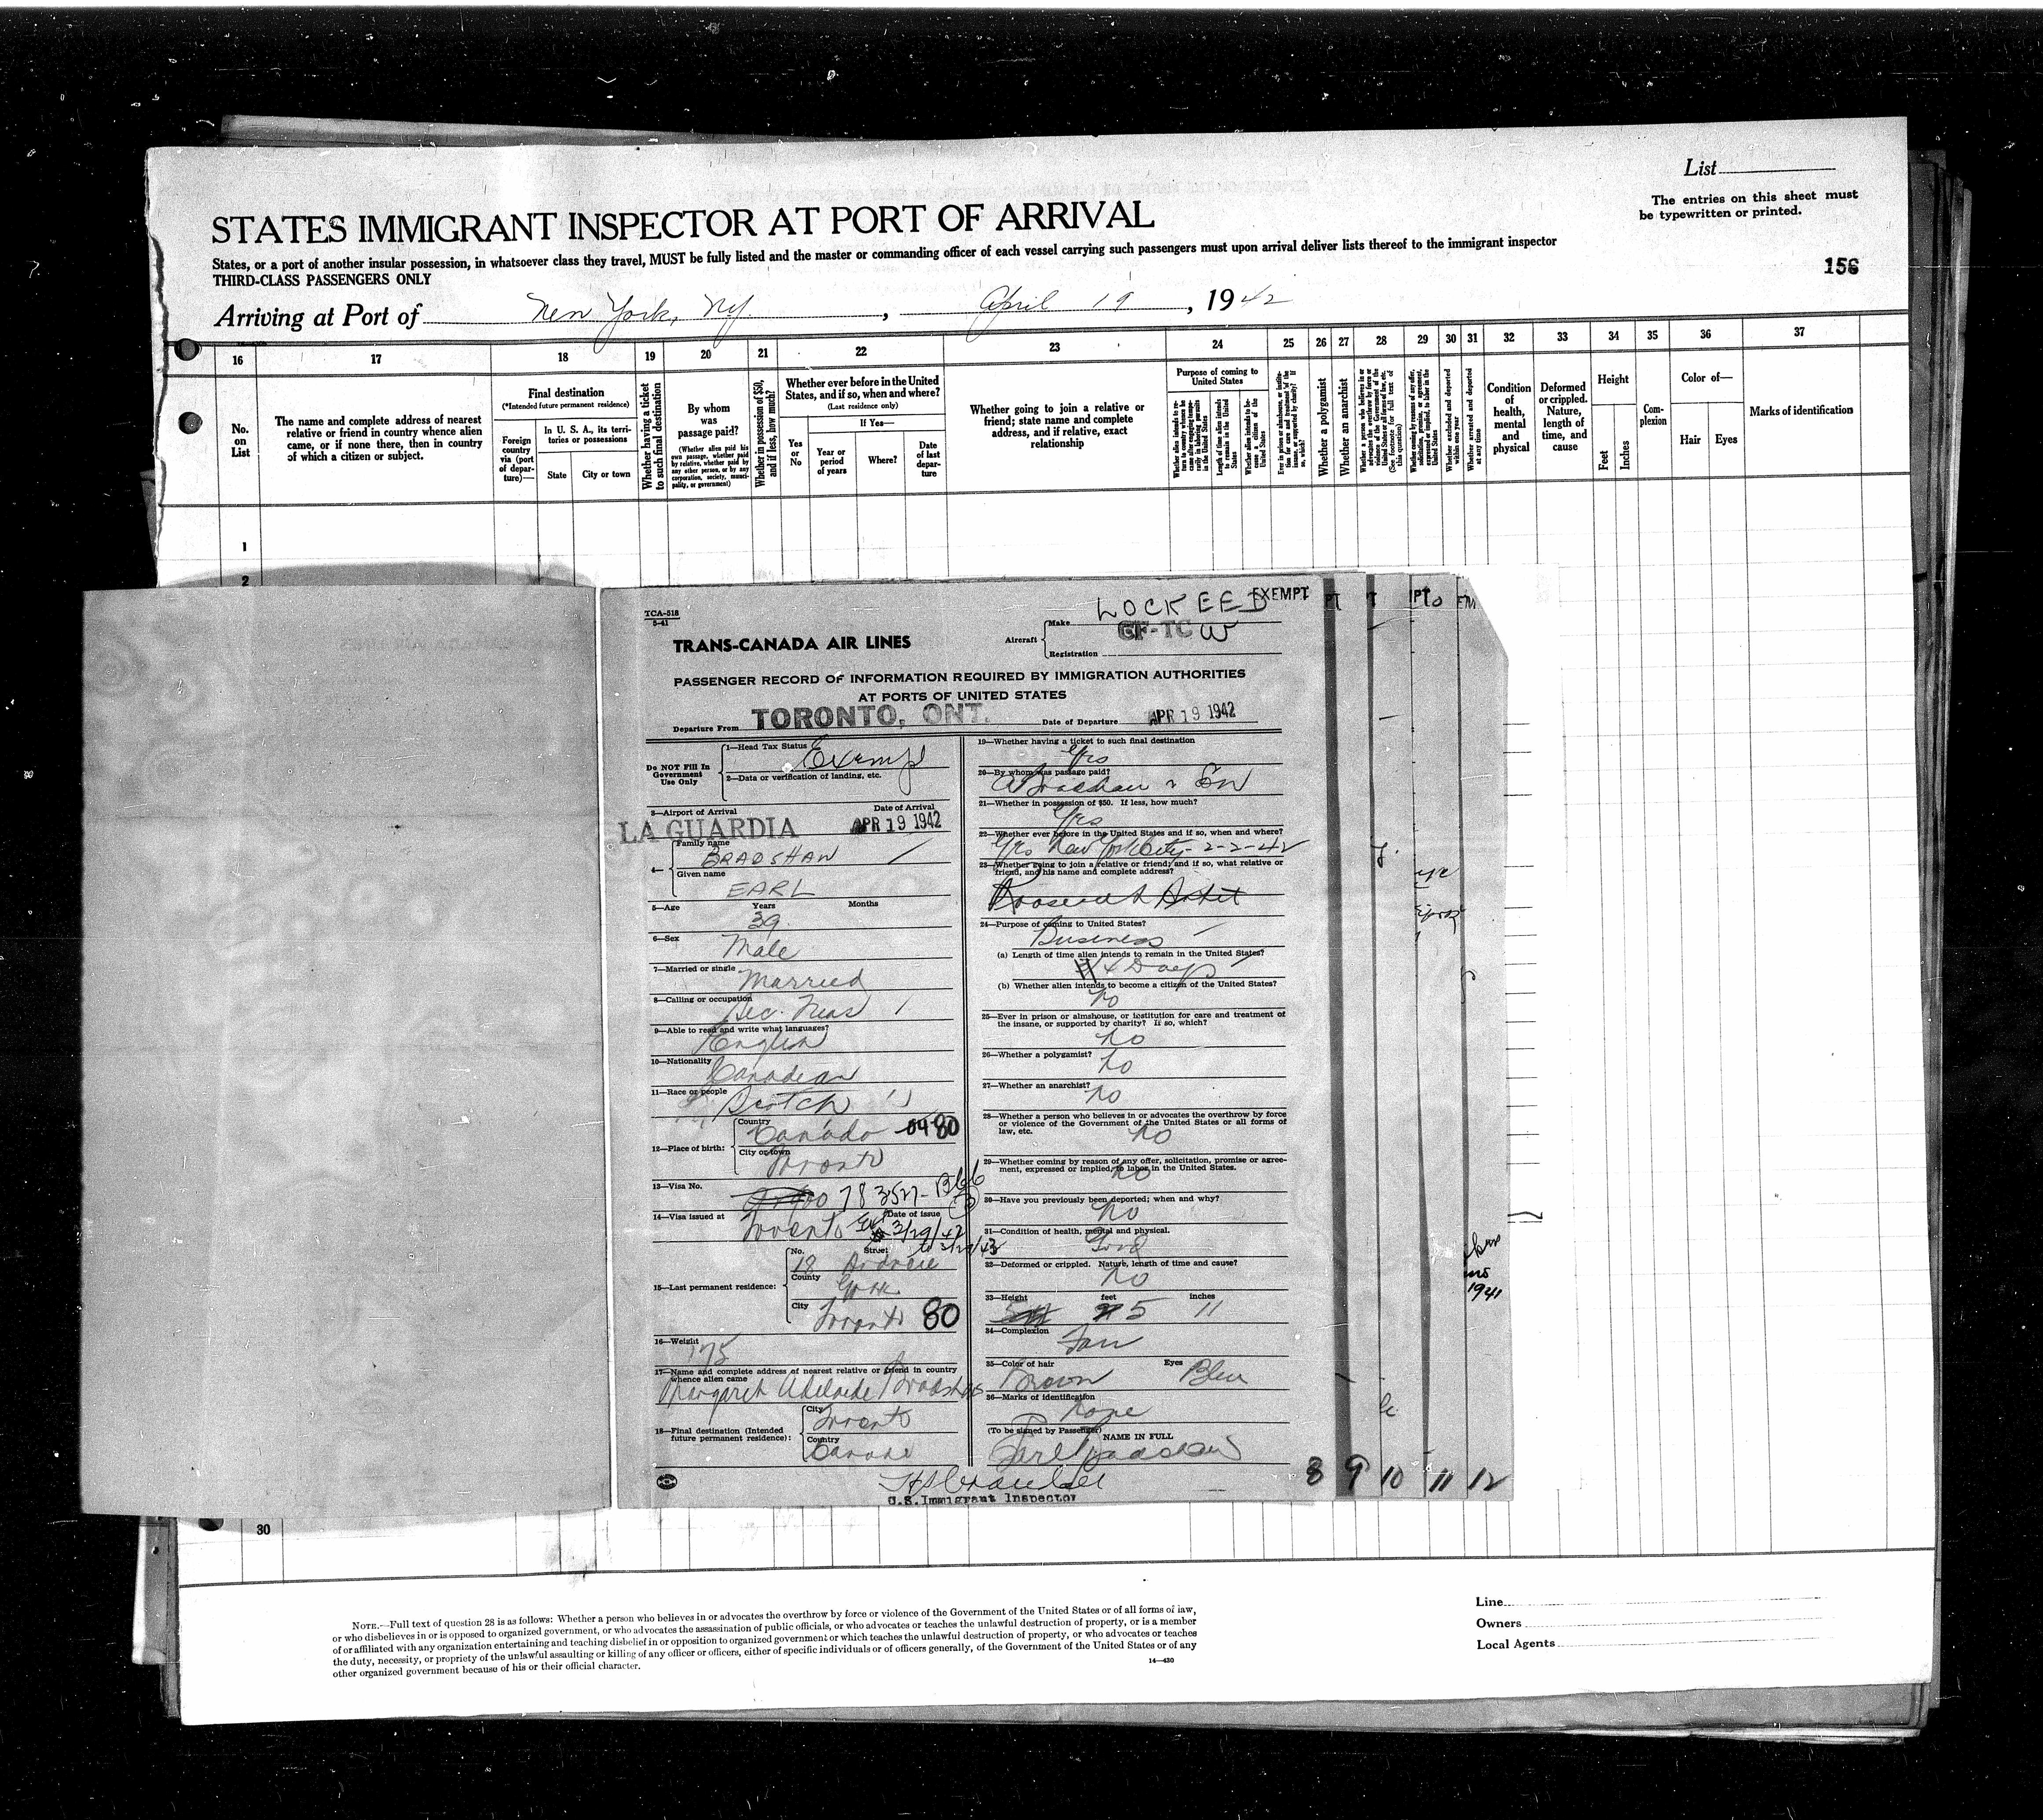 List
The entries on this sheet must
be typewritten or printed.
STATES IMMIGRANT INSPECTOR AT PORT OF ARRIVAL
States, or a port of another insular possession, in whatsoever class they travel, MUST be fully listed and the master or commanding officer of each vessel carrying such passengers must upon arrival deliver lists thereof to the immigrant inspector
THIRD-CLASS PASSENGERS ONLY
156
Arriving at Port of New York, Ny. , April 19 , 1942
16 17 18 19 20 21 22 23 24 25 26 27 28 29 30 31 32 33 34 35 36 37
No. on List
The name and complete address of nearest
relative or friend in country whence alien
came, or if none there, then in country
of which a citizen or subject.
Final destination
(*Intended future permanent residence)
Foreign country via (port of departure)—
In U. S. A., its territories or possessions
State
City or town
Whether having a ticket to such final destination
By whom was passage paid?
(Whether alien paid his own passage, whether paid by relative, whether paid by any other person, or by any corporation, society, municipality, or government)
Whether in possession of $50, and if less, how much?
Whether ever before in the United
States, and if so, when and where?
(Last residence only)
Yes or No
If Yes—
Year or period of years
Where?
Date of last departure
Whether going to join a relative or
friend; state name and complete
address, and if relative, exact
relationship
Purpose of coming to United States
Length of time alien intends to remain in the United States
Whether a polygamist
Whether an anarchist
Whether excluded and deported within one year
Whether arrested and deported at any time
Condition of health, mental and physical
Deformed or crippled. Nature, length of time, and cause
Height
Feet
Inches
Complexion
Color of—
Hair
Eyes
Marks of identification
1
2
TCA-518
5-41
TRANS-CANADA AIR LINES
Aircraft
Make LOCKEED
EXEMPT
CF-TC W
Registration
PASSENGER RECORD OF INFORMATION REQUIRED BY IMMIGRATION AUTHORITIES
AT PORTS OF UNITED STATES
Departure From TORONTO, ONT. Date of Departure APR 19 1942
Do NOT Fill In
Government
Use Only
1—Head Tax Status Exempt
2—Data or verification of landing, etc.
3—Airport of Arrival Date of Arrival
LA GUARDIA APR 19 1942
4— Family name
BRADSHAW
Given name
EARL
5—Age Years Months
39
6—Sex Male
7—Married or single Married
8—Calling or occupation
Sec. Treas
9—Able to read and write what languages?
English
10—Nationality Canadian
11—Race or people Scotch
12—Place of birth: Country Canada 80
City or town Toronto
13—Visa No. 783527-B66
14—Visa issued at Toronto Date of issue 3/29/42
to 3/29/43
15—Last permanent residence: No. 18 Street
County York
City Toronto 80
16—Weight 175
17—Name and complete address of nearest relative or friend in country
whence alien came
Margaret Adelaide Bradshaw
18—Final destination (Intended
future permanent residence):
City Toronto
Country Canada
19—Whether having a ticket to such final destination
Yes
20—By whom was passage paid?
A Bradshaw & Son
21—Whether in possession of $50. If less, how much?
Yes
22—Whether ever before in the United States and if so, when and where?
Yes New York City - 2-2-42
23—Whether going to join a relative or friend; and if so, what relative or
friend, and his name and complete address?
Roosevelt Hotel
24—Purpose of coming to United States?
Business
(a) Length of time alien intends to remain in the United States?
4 Days
(b) Whether alien intends to become a citizen of the United States?
no
25—Ever in prison or almshouse, or institution for care and treatment of
the insane, or supported by charity? If so, which?
no
26—Whether a polygamist?
no
27—Whether an anarchist?
no
28—Whether a person who believes in or advocates the overthrow by force
or violence of the Government of the United States or all forms of
law, etc.
no
29—Whether coming by reason of any offer, solicitation, promise or agree-
ment, expressed or implied, to labor in the United States.
no
30—Have you previously been deported; when and why?
no
31—Condition of health, mental and physical.
Good
32—Deformed or crippled. Nature, length of time and cause?
no
33—Height feet inches
5 11
34—Complexion
Fair
35—Color of hair Eyes
Brown Blue
36—Marks of identification
none
(To be signed by Passenger) NAME IN FULL
Earl Bradshaw
U.S. Immigrant Inspector
1941
8 9 10 11 12
30
NOTE.—Full text of question 28 is as follows: Whether a person who believes in or advocates the overthrow by force or violence of the Government of the United States or of all forms of law,
or who disbelieves in or is opposed to organized government, or who advocates the assassination of public officials, or who advocates or teaches the unlawful destruction of property, or is a member
of or affiliated with any organization entertaining and teaching disbelief in or opposition to organized government or which teaches the unlawful destruction of property, or who advocates or teaches
the duty, necessity, or propriety of the unlawful assaulting or killing of any officer or officers, either of specific individuals or of officers generally, of the Government of the United States or of any
other organized government because of his or their official character.
14—430
Line
Owners
Local Agents